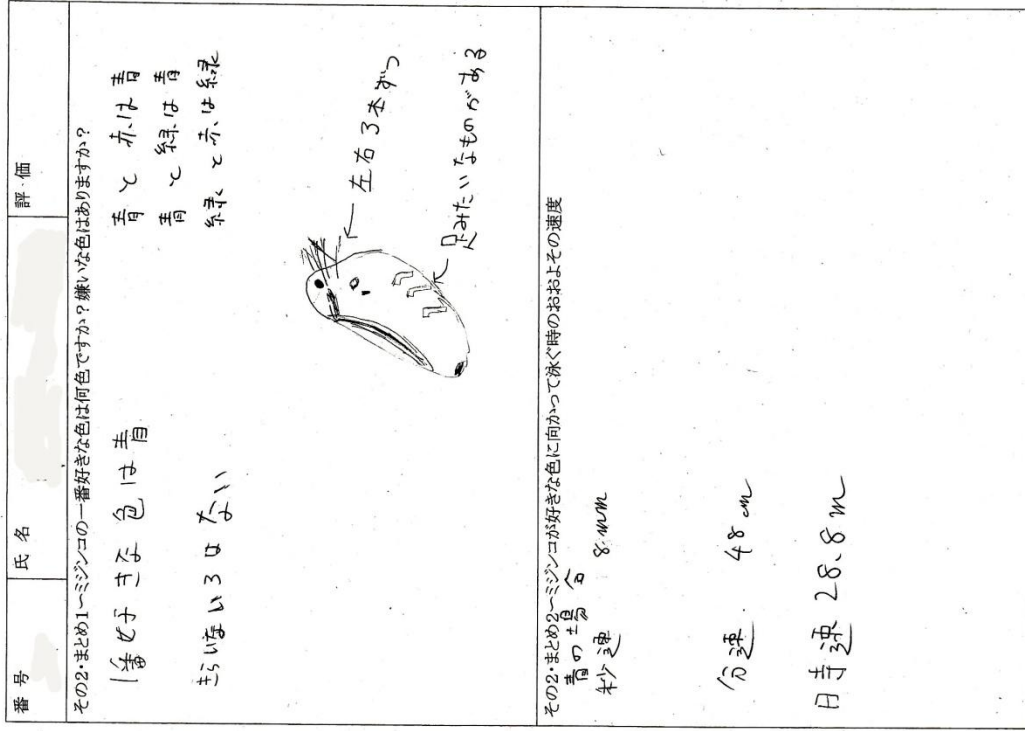 番号
氏名
評価
その2・まとめ1～ミジンコの一番好きな色は何色ですか？嫌いな色はありますか？
1番好きな色は青
きらいないろはない
青と赤は青
青と緑は青
緑と赤は緑
左右3本ずつ
足みたいなものがある
その2・まとめ2～ミジンコが好きな色に向かって泳ぐ時のおおよその速度
青の場合
秒速 8mm
分速 48cm
時速 28.8m